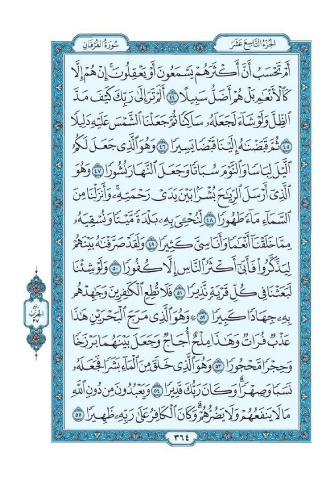 الجزء التاسع عشر
سورة الفرقان
أَمْ تَحْسَبُ أَنَّ أَكْثَرَهُمْ يَسْمَعُونَ أَوْ يَعْقِلُونَ ۚ إِنْ هُمْ إِلَّا
كَالْأَنْعَٰمِ بَلْ هُمْ أَضَلُّ سَبِيلًا ٤٤ أَلَمْ تَرَ إِلَىٰ رَبِّكَ كَيْفَ مَدَّ
الظِّلَّ وَلَوْ شَاءَ لَجَعَلَهُ سَاكِنًا ثُمَّ جَعَلْنَا الشَّمْسَ عَلَيْهِ دَلِيلًا
٤٥ ثُمَّ قَبَضْنَٰهُ إِلَيْنَا قَبْضًا يَسِيرًا ٤٦ وَهُوَ الَّذِي جَعَلَ لَكُمُ
الَّيْلَ لِبَاسًا وَالنَّوْمَ سُبَاتًا وَجَعَلَ النَّهَارَ نُشُورًا ٤٧ وَهُوَ
الَّذِي أَرْسَلَ الرِّيَٰحَ بُشْرًا بَيْنَ يَدَيْ رَحْمَتِهِ ۚ وَأَنزَلْنَا مِنَ
السَّمَاءِ مَاءً طَهُورًا ٤٨ لِّنُحْـِۧيَ بِهِ بَلْدَةً مَّيْتًا وَنُسْقِيَهُ
مِمَّا خَلَقْنَا أَنْعَٰمًا وَأَنَاسِيَّ كَثِيرًا ٤٩ وَلَقَدْ صَرَّفْنَٰهُ بَيْنَهُمْ
لِيَذَّكَّرُوا فَأَبَىٰ أَكْثَرُ النَّاسِ إِلَّا كُفُورًا ٥٠ وَلَوْ شِئْنَا
لَبَعَثْنَا فِي كُلِّ قَرْيَةٍ نَّذِيرًا ٥١ فَلَا تُطِعِ الْكَٰفِرِينَ وَجَٰهِدْهُم
بِهِ جِهَادًا كَبِيرًا ٥٢ ۞ وَهُوَ الَّذِي مَرَجَ الْبَحْرَيْنِ هَٰذَا
عَذْبٌ فُرَاتٌ وَهَٰذَا مِلْحٌ أُجَاجٌ وَجَعَلَ بَيْنَهُمَا بَرْزَخًا
وَحِجْرًا مَّحْجُورًا ٥٣ وَهُوَ الَّذِي خَلَقَ مِنَ الْمَاءِ بَشَرًا فَجَعَلَهُ
نَسَبًا وَصِهْرًا ۗ وَكَانَ رَبُّكَ قَدِيرًا ٥٤ وَيَعْبُدُونَ مِن دُونِ اللَّهِ
مَا لَا يَنفَعُهُمْ وَلَا يَضُرُّهُمْ ۗ وَكَانَ الْكَافِرُ عَلَىٰ رَبِّهِ ظَهِيرًا ٥٥
الحزب
٣٧
٣٦٤